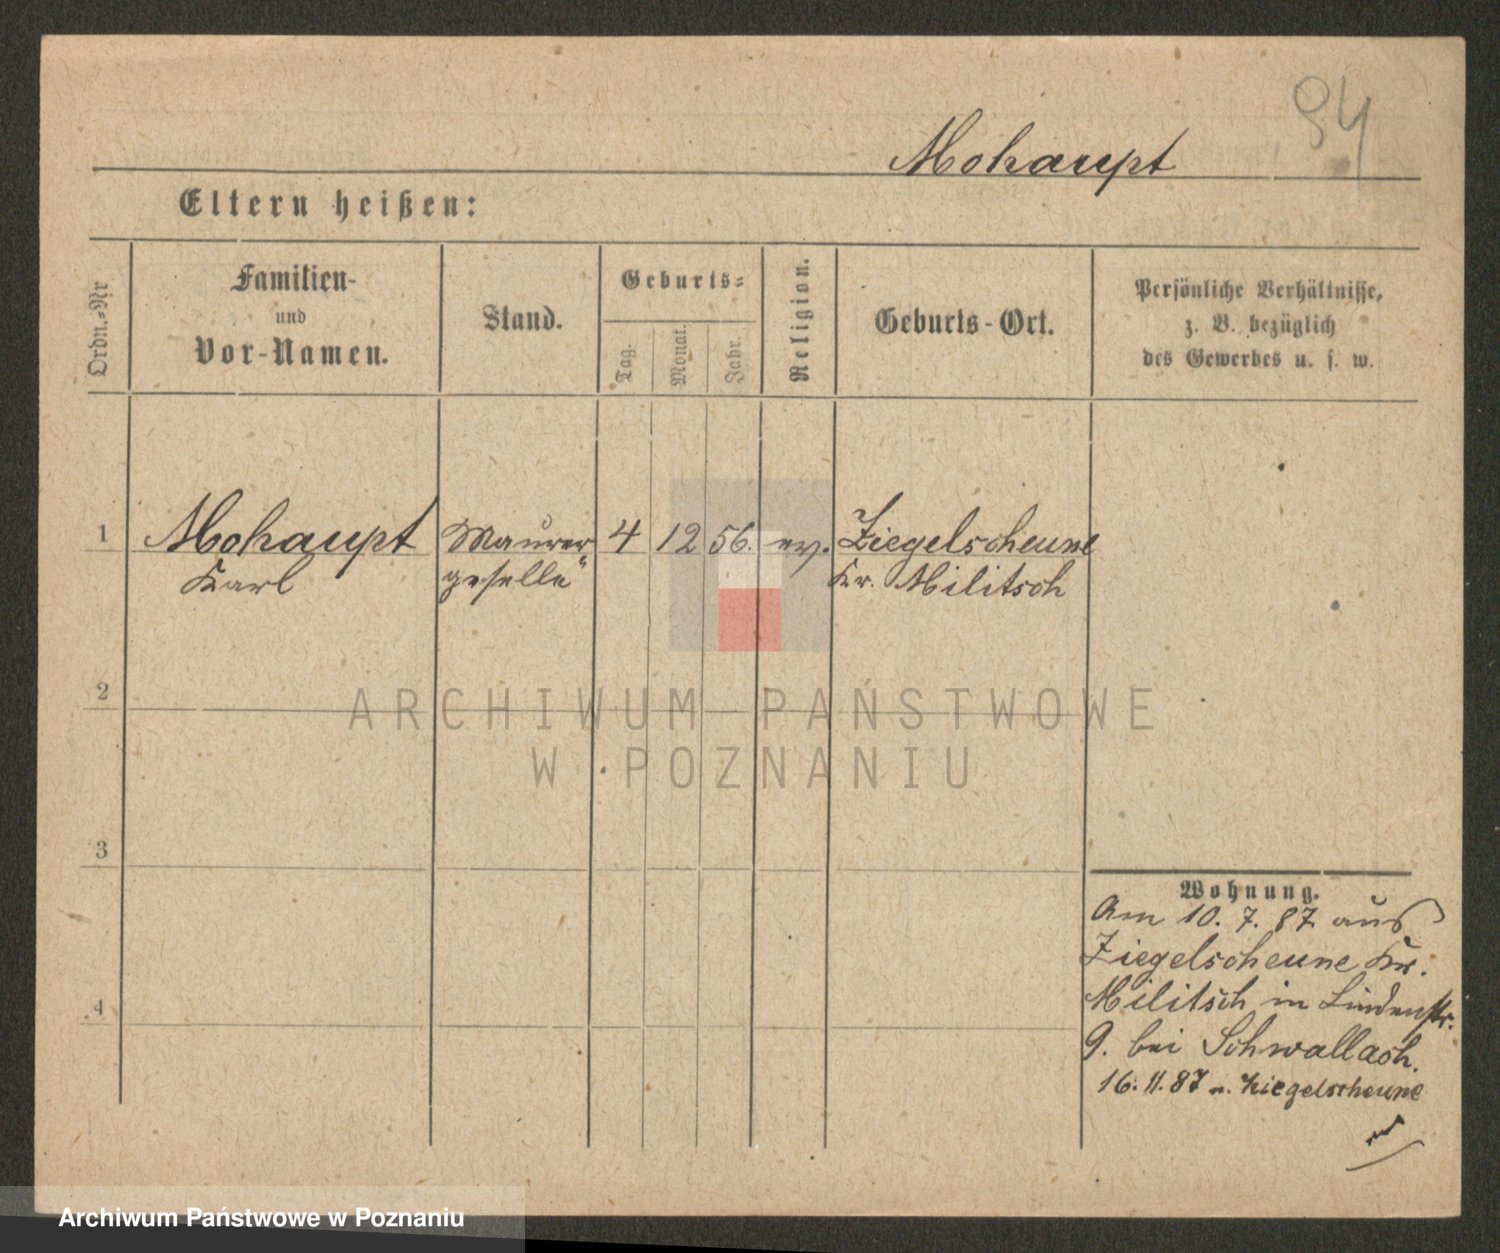 94
Mohaupt
Eltern heißen:
Ordn.=Nr
Familien-
und
Vor-Namen.
Stand.
Geburts=
Tag.
Monat.
Jahr.
Religion.
Geburts-Ort.
Persönliche Verhältnisse,
z. B. bezüglich
des Gewerbes u. s. w.
1 Mohaupt Maurer 4 12 56. ev. Ziegelscheune
Karl geselle Kr. Militsch
2
3
4
Wohnung.
Am 10. 7. 87. aus
Ziegelscheune Kr.
Militsch in Lindenstr.
9. bei Schwallach.
16. 11. 87 n. Ziegelscheune
ARCHIWUM PAŃSTWOWE
W POZNANIU
Archiwum Państwowe w Poznaniu